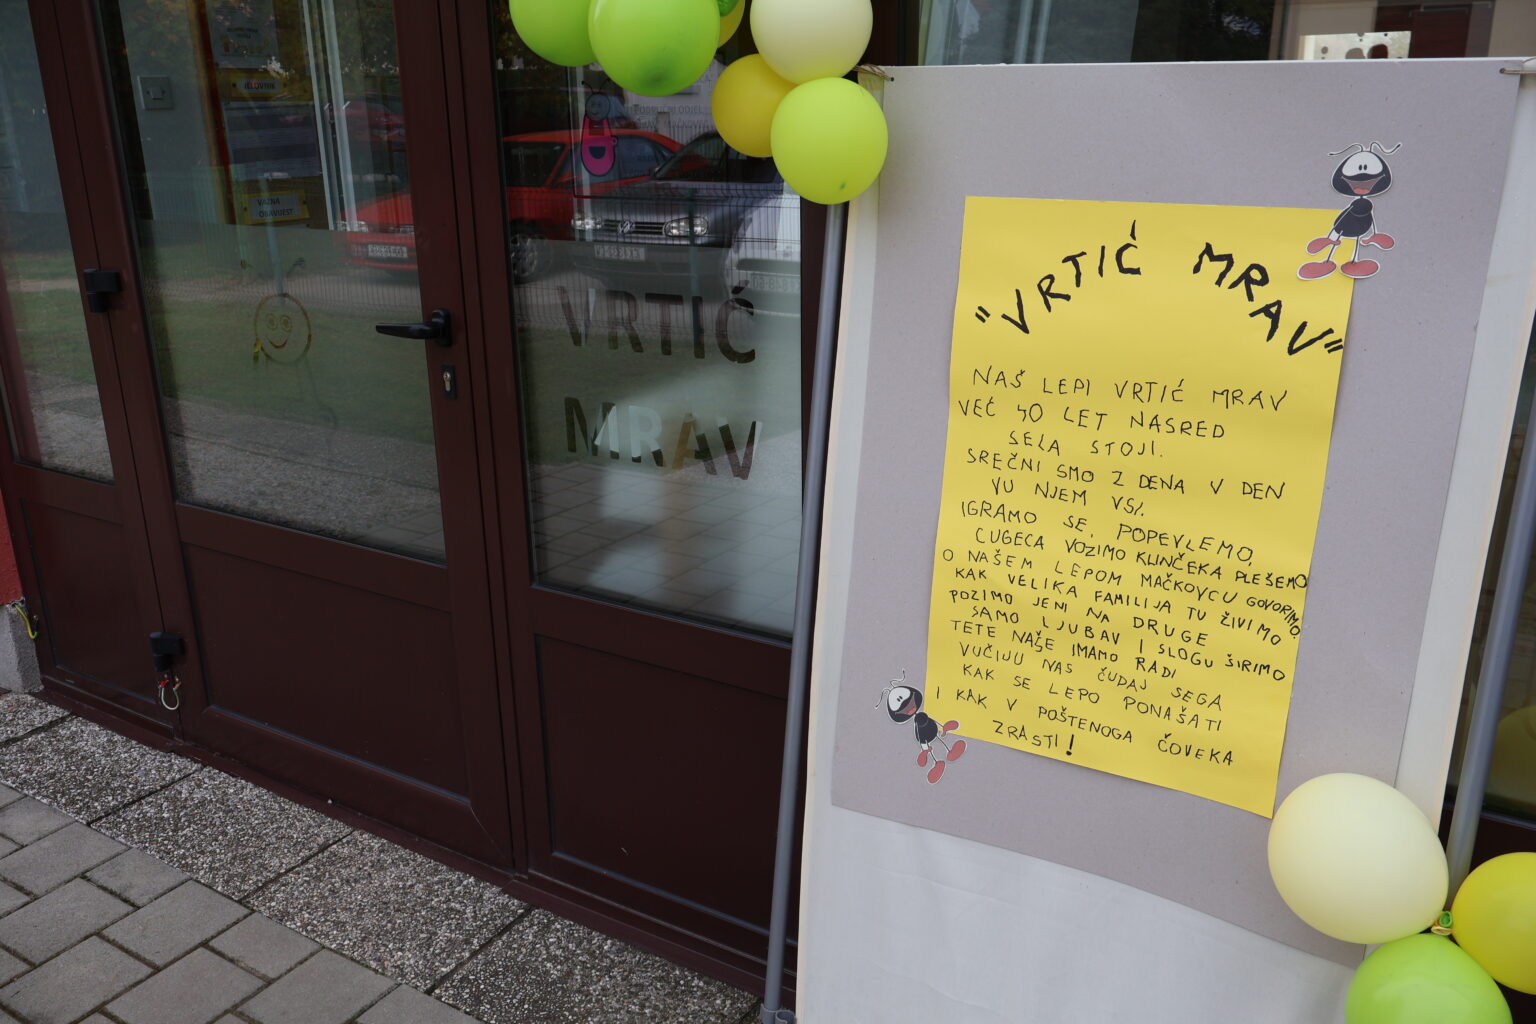 JELOVNIK
VAŽNA
OBAVIJEST
VRTIĆ
MRAV
"VRTIĆ MRAV"
NAŠ LEPI VRTIĆ MRAV
VEČ 40 LET NASRED
SELA STOJI.
SREČNI SMO Z DENA V DEN
VU NJEM VSI.
IGRAMO SE, POPEVLEMO,
CUGECA VOZIMO KLINČEKA PLEŠEMO
O NAŠEM LEPOM MAČKOVCU GOVORIMO.
KAK VELIKA FAMILIJA TU ŽIVIMO
POZIMO JENI NA DRUGE
SAMO LJUBAV I SLOGU ŠIRIMO
TETE NAŠE IMAMO RADI
VUČIJU NAS ČUDAJ SEGA
KAK SE LEPO PONAŠATI
I KAK V POŠTENOGA ČOVEKA
ZRASTI!